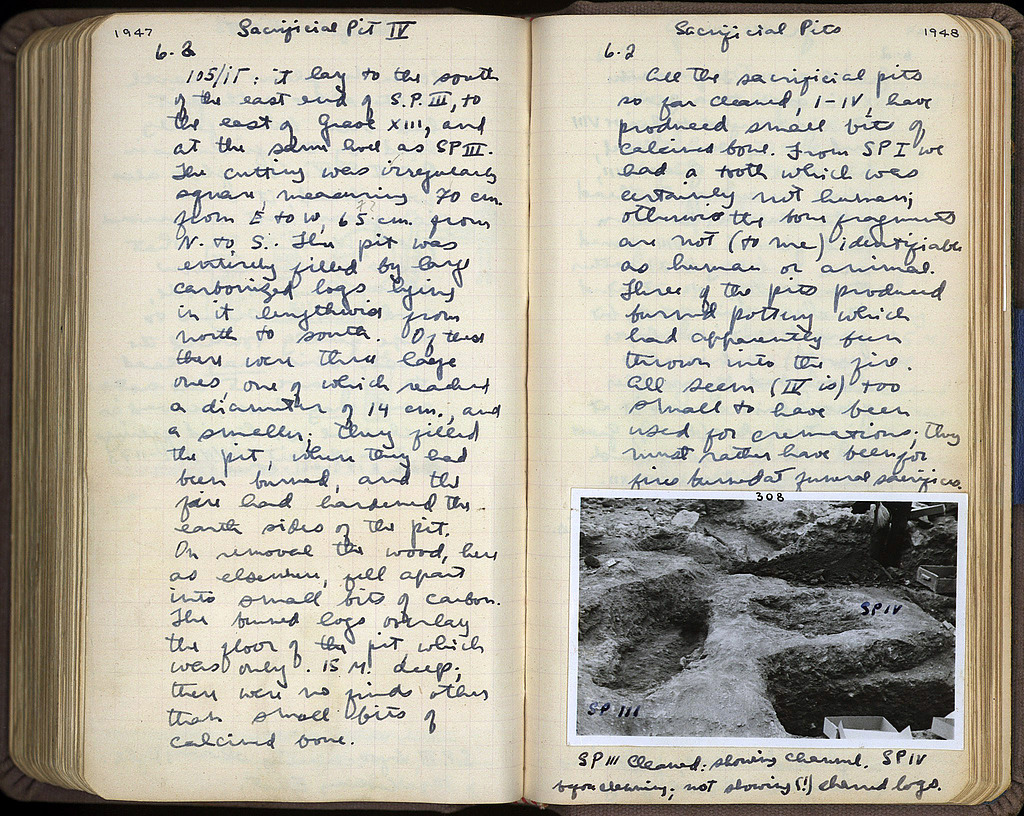 1947
Sacrificial Pit IV
6.2
105/ΙΤ: it lay to the south
of the east end of S.P. III, to
the east of Grave XIII, and
at the same level as SP III.
The cutting was irregularly
square, measuring 70 cm.
from E to W, 65 cm. from
N. to S.. The pit was
entirely filled by large
carbonized logs lying
in it lengthwise from
north to south. Of these
there were three large
ones, one of which reached
a diameter of 14 cm., and
a smaller; they filled
the pit, where they had
been burned, and the
fire had hardened the
earth sides of the pit.
On removal the wood, here
as elsewhere, fell apart
into small bits of carbon.
The burned logs overlay
the floor of the pit which
was only .15 M. deep;
there were no finds other
than small bits of
calcined bone.
Sacrificial Pits
1948
6.2
All the sacrificial pits
so far cleaned, I-IV, have
produced small bits of
calcined bone. From SP I we
had a tooth which was
certainly not human;
otherwise the bone fragments
are not (to me) identifiable
as human or animal.
Three of the pits produced
burned pottery which
had apparently been
thrown into the fire.
All seem (IV is) too
small to have been
used for cremations; they
must rather have been for
fires burned at funeral sacrifices.
308
SP IV
SP III
SP III cleaned: showing channel. SP IV
before cleaning; not showing (!) charred logs.